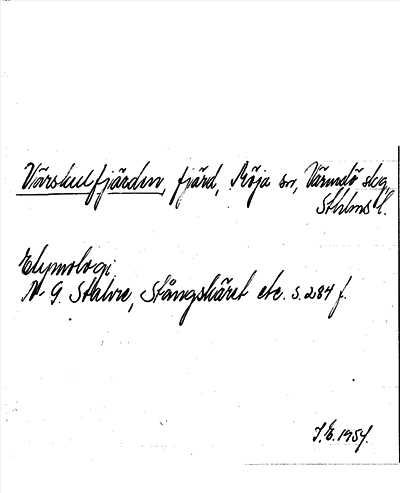 Värskulfjärden, fjärd, Möja sn, Värmdö skg,
Sthlms l.
Etymologi
N. G. Stahre, Stångskäret etc. s. 284 f.
J. E. 1957.